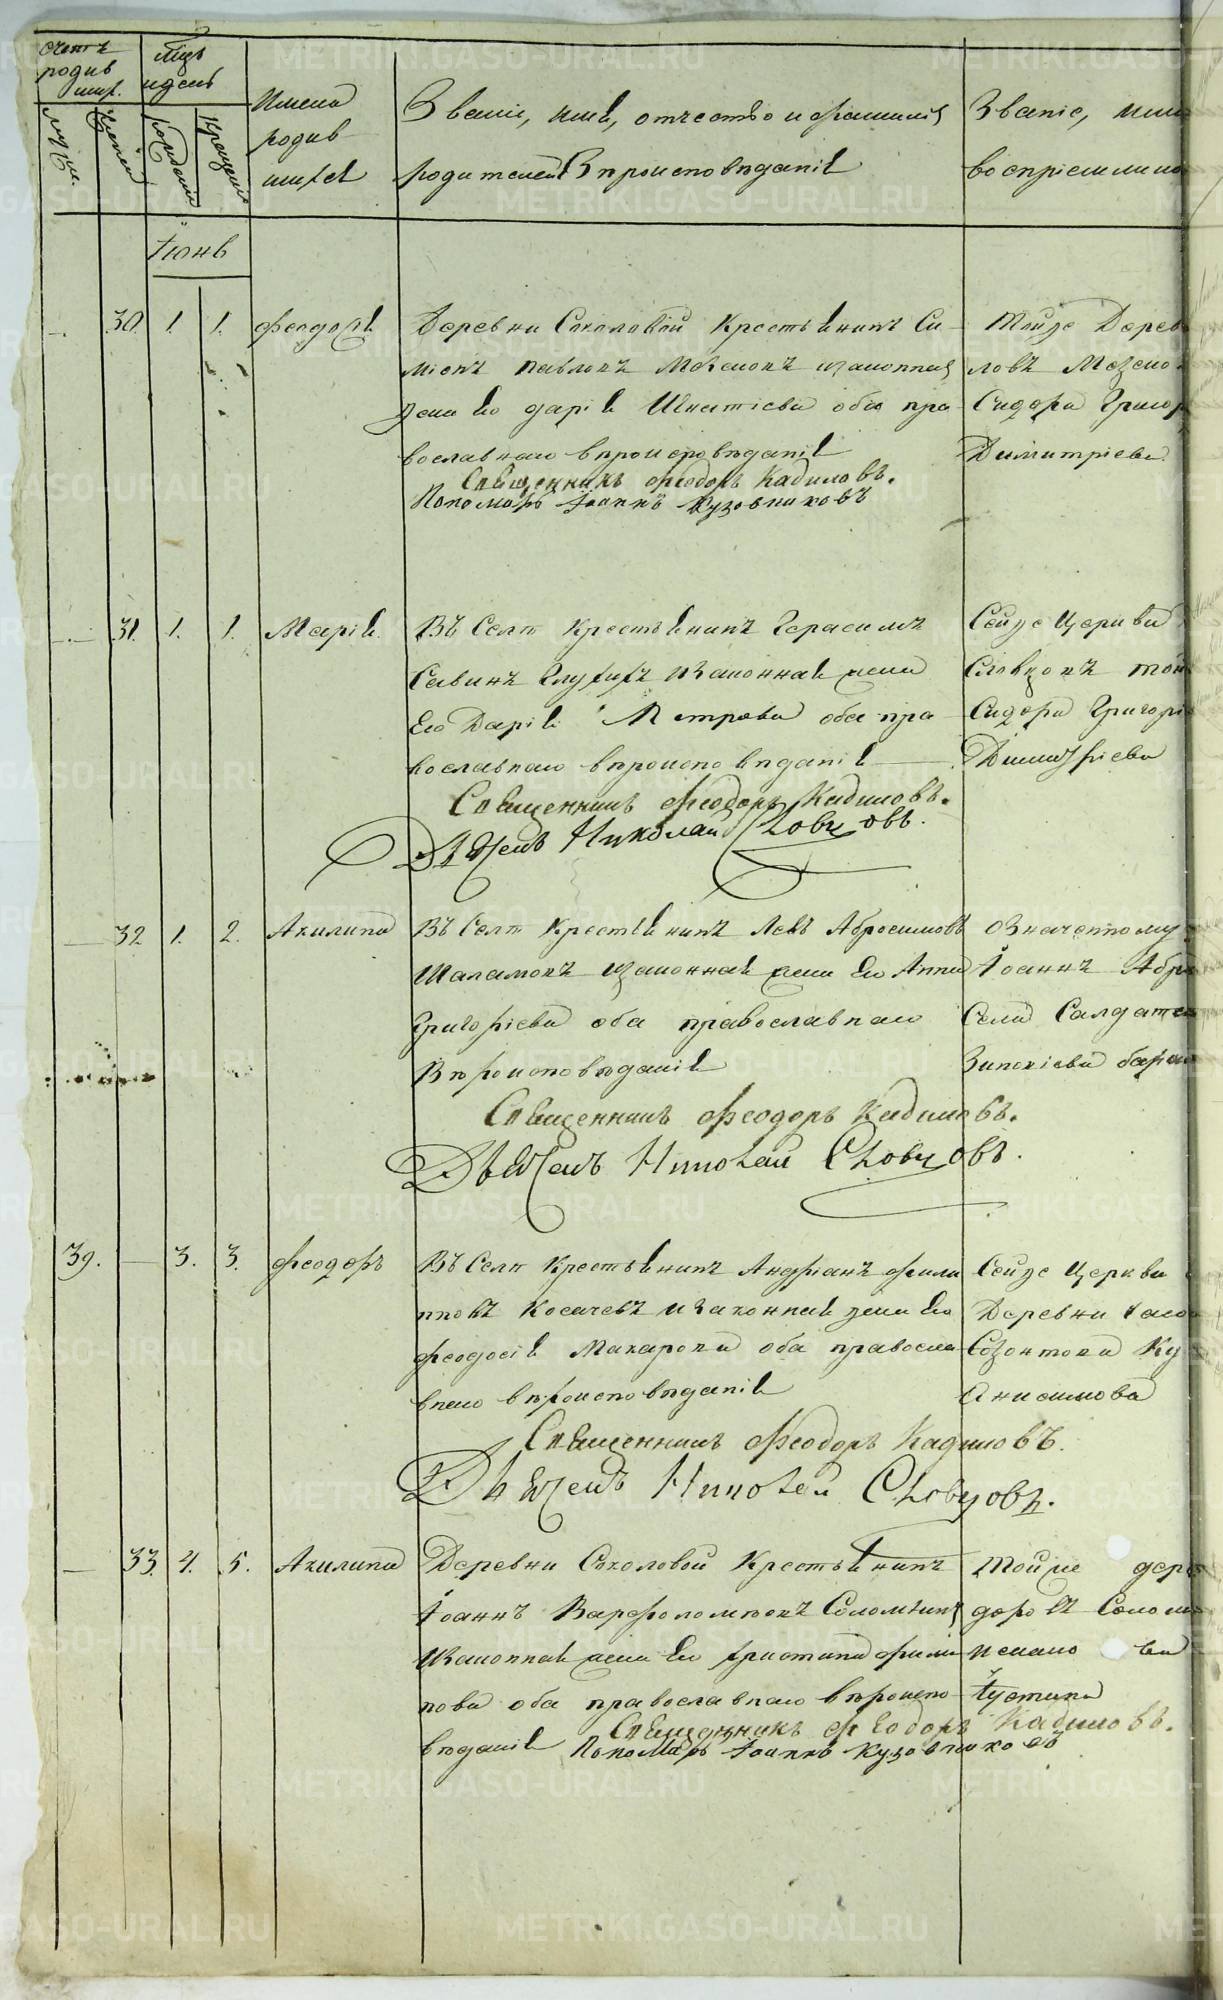 счетъ родив ших.
мѣцъ и день
муж.
женск
рожденія
крещенія
Имена
родив
шихся
Званіе, имя, отчество и фамилія
родителей и вѣроисповѣданія
Званіе, имя
воспріемнико
Іюнь
30. 1. 1. Феодосія
Деревни Соколовой Крестьянинъ Си
меонъ Павловъ и законная
жена его Дарія Игнатіева оба пра
вославнаго вѣроисповѣданія
Священникъ Феодоръ Кадиловъ.
Пономарь Іоаннъ Кузовниковъ
Тойже Дерев
Сидора Григор
Димитріева
31. 1. 1. Марія
Въ Селѣ Крестьянинъ Герасимъ
Савинъ Глухихъ и законная жена
Его Дарія Петрова оба пра
вославнаго вѣроисповѣданія
Священникъ Феодоръ Кадиловъ.
Дьячекъ Николай Словцовъ.
Сейже Церкви
Словцовъ той
Сидора Григорі
Димитріева
32 1. 2. Акилина
Въ Селѣ Крестьянинъ Левъ Абросимовъ
Шаламовъ и законная жена Его Анна
Григоріева оба православнаго
Вѣроисповѣданія
Священникъ Феодоръ Кадиловъ.
Дьячекъ Николай Словцовъ.
Означенному
Іоаннъ Абро
Села Салдатс
39. 3. 3. Феодоръ
Въ Селѣ Крестьянинъ Андріанъ Фили
пповъ Косачевъ и законная жена Его
Феодосія Макарова оба правосла
внаго вѣроисповѣданія
Священникъ Феодоръ Кадиловъ.
Дьячекъ Николай Словцовъ.
Сейже Церкви
Деревни
Созонтова Ку
Анисимова
33. 4. 5. Акилина
Деревни Соколовой Крестьянинъ
Іоаннъ Варфоломѣевъ Соломѣинъ
И законная жена Его Христина Фили
пова оба православнаго вѣроиспо
вѣданія Священникъ Феодоръ Кадиловъ.
Пономарь Іоаннъ Кузовниковъ
Тойже дере
Іустина
METRIKI.GASO-URAL.RU